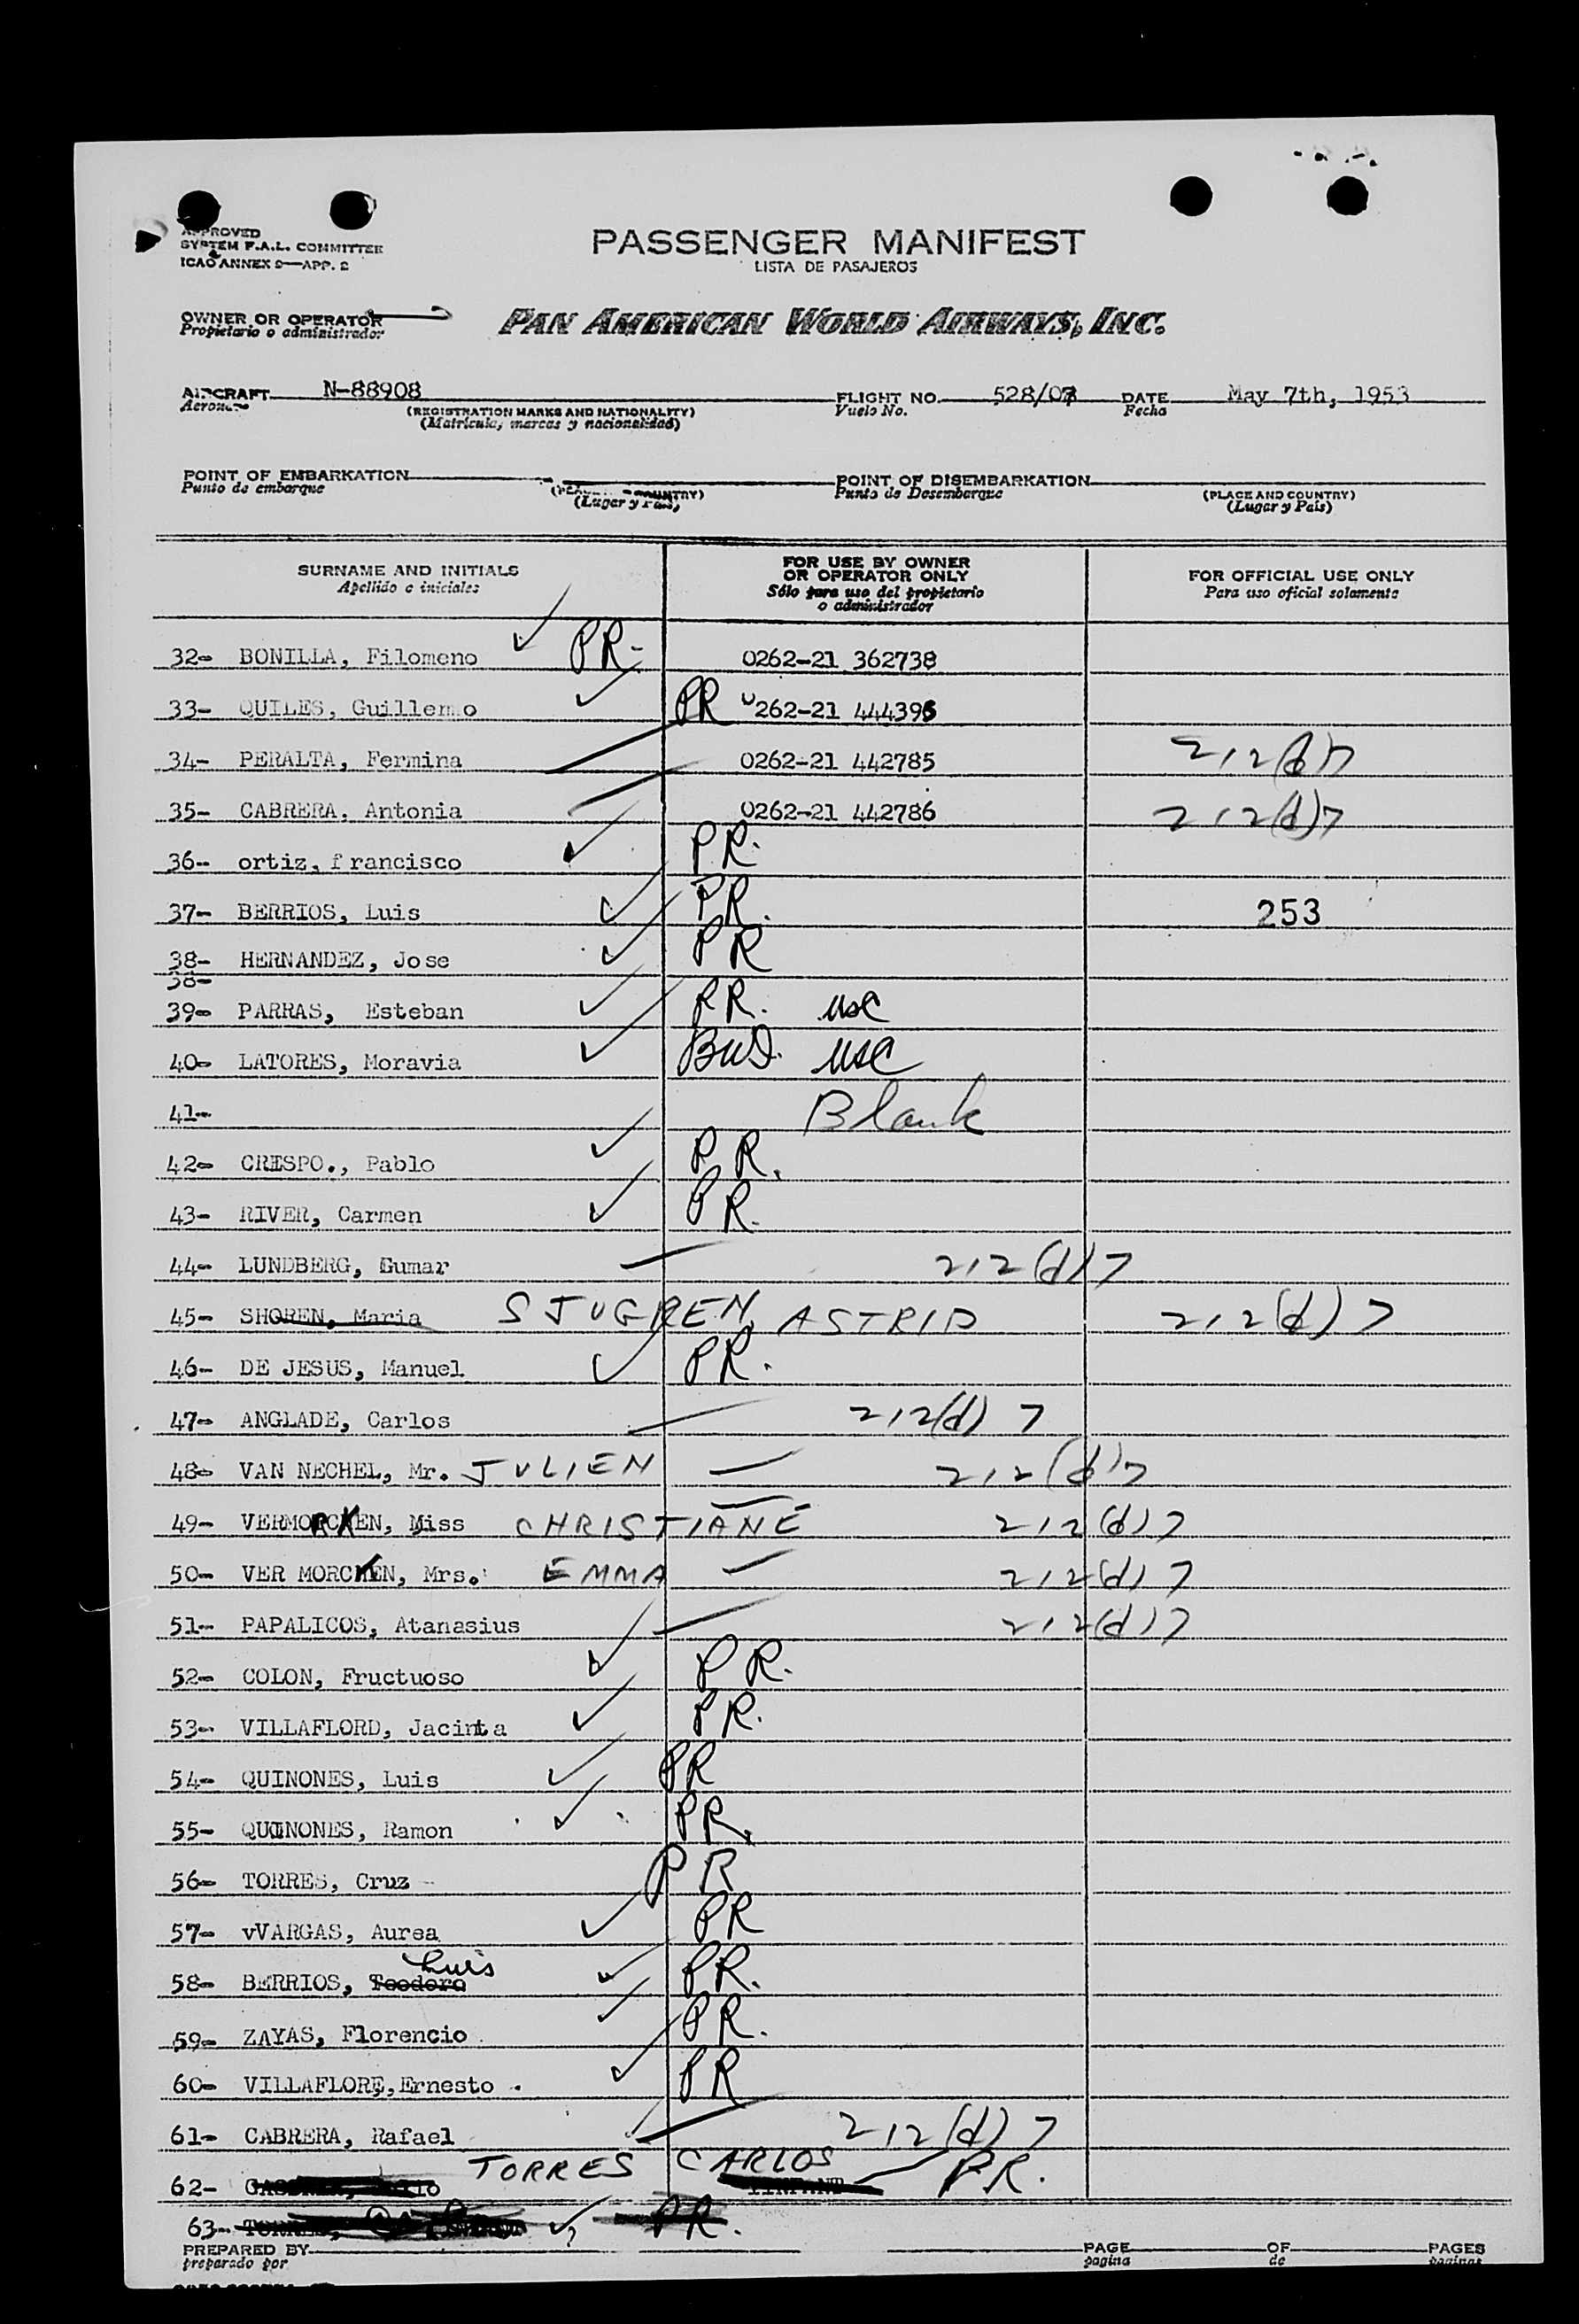 APPROVED
SYSTEM F.A.L. COMMITTEE
ICAO ANNEX 9—APP. 2
PASSENGER MANIFEST
LISTA DE PASAJEROS
OWNER OR OPERATOR
Propietario o administrador
PAN AMERICAN WORLD AIRWAYS, INC.
AIRCRAFT N-88908
Aeronave
(REGISTRATION MARKS AND NATIONALITY)
(Matrícula, marcas y nacionalidad)
FLIGHT NO. 528/07 DATE May 7th, 1953
Vuelo No. Fecha
POINT OF EMBARKATION
Punto de embarque
(PLACE AND COUNTRY)
(Lugar y País)
POINT OF DISEMBARKATION
Punto de Desembarque
(PLACE AND COUNTRY)
(Lugar y País)
SURNAME AND INITIALS
Apellido e iniciales
FOR USE BY OWNER
OR OPERATOR ONLY
Sólo para uso del propietario
o administrador
FOR OFFICIAL USE ONLY
Para uso oficial solamente
32- BONILLA, Filomeno PR- 0262-21 362738
33- QUILES, Guillermo PR 0262-21 444395
34- PERALTA, Fermina 0262-21 442785 212(d)7
35- CABRERA, Antonia 0262-21 442786 212(d)7
36- ortiz, francisco PR.
37- BERRIOS, Luis PR. 253
38- HERNANDEZ, Jose PR
38-
39- PARRAS, Esteban PR. usc
40- LATORES, Moravia BWI. usc
41- Blank
42- CRESPO., Pablo PR.
43- RIVER, Carmen PR.
44- LUNDBERG, Gumar 212(d)7
45- SHOREN, Maria SJUGREN, ASTRID 212(d)7
46- DE JESUS, Manuel PR.
47- ANGLADE, Carlos 212(d)7
48- VAN NECHEL, Mr. JULIEN 212(d)7
49- VERMORCKEN, Miss CHRISTIANE 212(d)7
50- VER MORCKEN, Mrs. EMMA 212(d)7
51- PAPALICOS, Atanasius 212(d)7
52- COLON, Fructuoso PR.
53- VILLAFLORD, Jacinta PR.
54- QUINONES, Luis PR
55- QUINONES, Ramon PR.
56- TORRES, Cruz PR
57- vVARGAS, Aurea PR
Luis
58- BERRIOS, Teodoro PR.
59- ZAYAS, Florencio PR.
60- VILLAFLORE, Ernesto PR
61- CABRERA, Rafael 212(d)7
62- TORRES CARLOS PR.
63- PR.
PREPARED BY
preparado por
PAGE OF PAGES
pagina de paginas